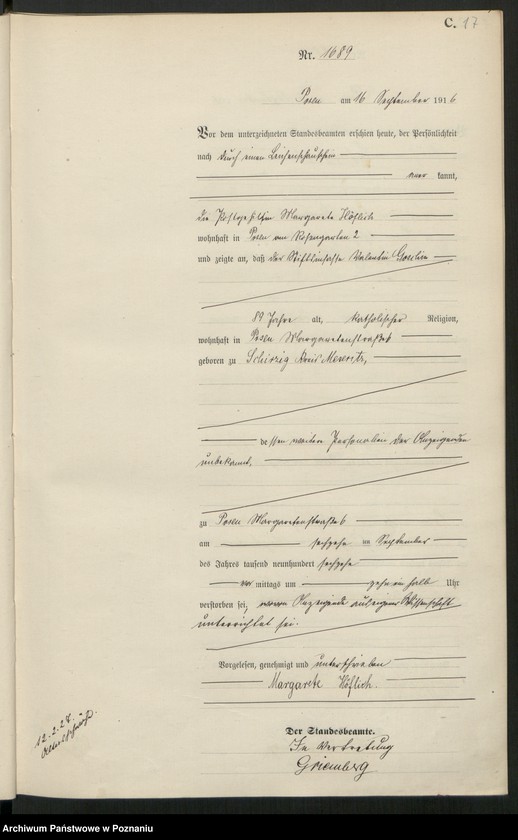 C. 17
Nr. 1689
Posen am 16 September 1916
Vor dem unterzeichneten Standesbeamten erschien heute, der Persönlichkeit
nach durch einen Leichenschauschein
aner kannt,
die Margarete Höflich
wohnhaft in Posen am Rosengarten 2
und zeigte an, daß der Stiftsinsasse Valentin
89 Jahre alt, katholischer Religion,
wohnhaft in Posen Margaretenstraße 6
geboren zu Kreis Meseritz,
dessen weitere Personalien der Anzeigenden
unbekannt,
zu Posen Margaretenstraße 6
am sechzehn ten September
des Jahres tausend neunhundert sechzehn
vor mittags um zehn ein halb Uhr
verstorben sei, wovon Anzeigende aus eigener Wissenschaft
unterrichtet sei.
Vorgelesen, genehmigt und unterschrieben
Margarete Höflich.
Der Standesbeamte.
In Vertretung
12.2.24.
Archiwum Państwowe w Poznaniu